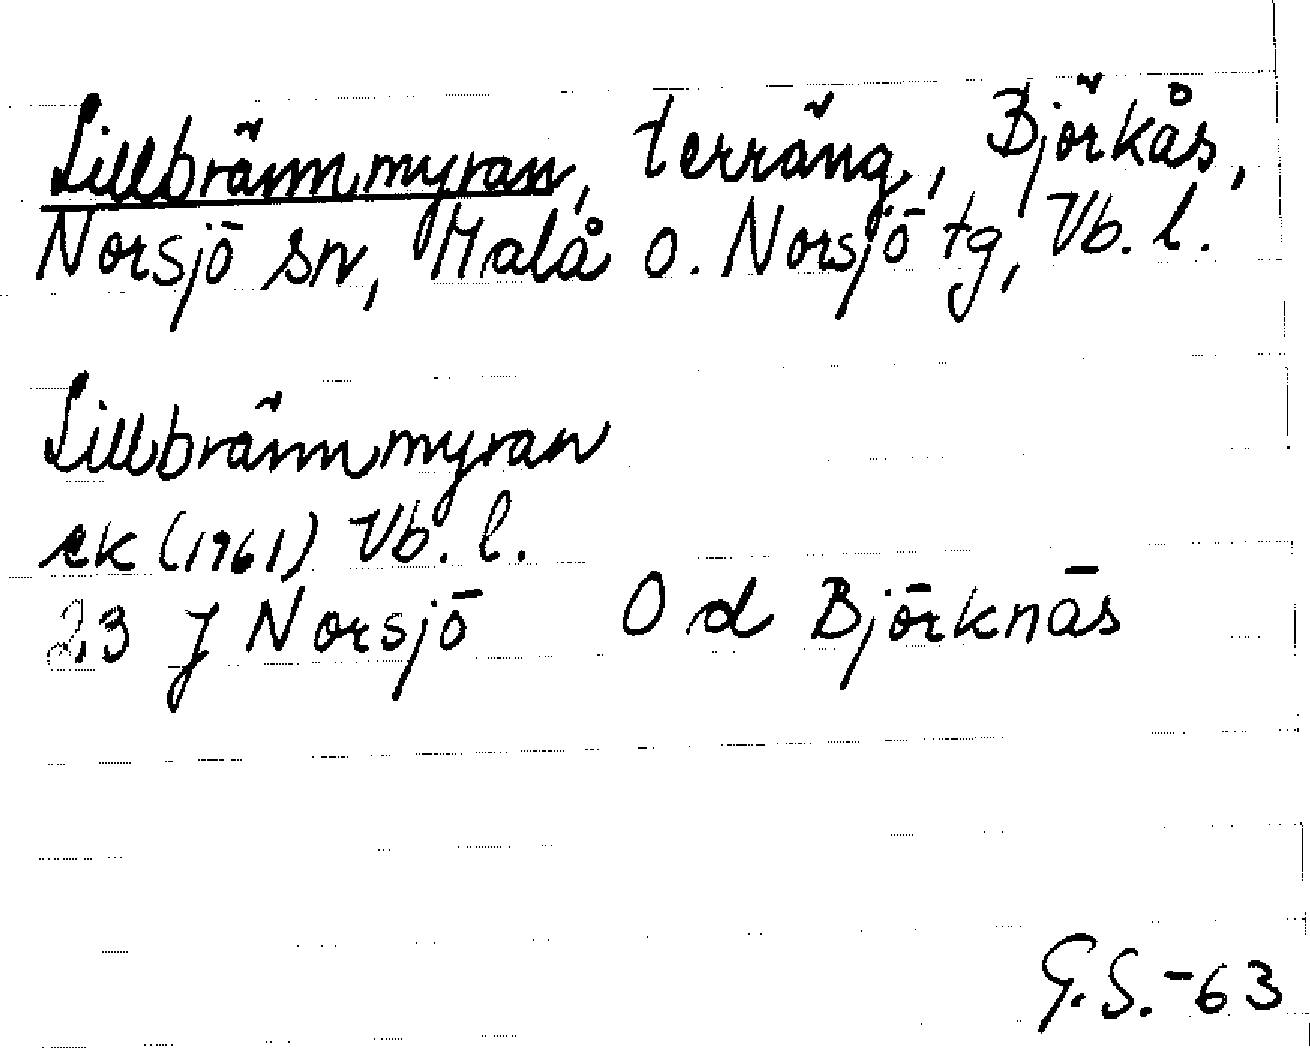 Lillbrännmyran, terräng, Björkås,
Norsjö sn, Malå o. Norsjö tg, Vb. l.
Lillbrännmyran
ek (1961) Vb. l.
23 J Norsjö O d Björknäs
G.S.-63